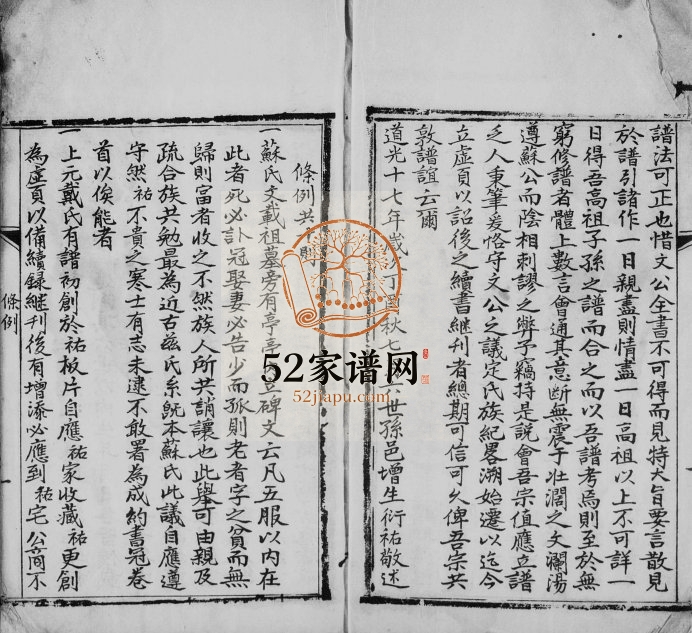 譜法可正也惜文公全書不可得而見特大旨要言散見
於譜引諸作一曰親盡則情盡一曰高祖以上不可詳一
曰得吾高祖子孫之譜而合之而以吾譜考焉則至於無
窮修譜者體上數言會通其意斷無震于壯濶之文瀾蕩
遵蘇公而陰相刺謬之弊予竊持是說會吾宗值應立譜
乏人秉筆爰恪守文公之議定氏族紀畧溯始遷以迄今
立虛頁以詔後之續書継刋者總期可信可久俾吾宗共
敦譜誼云爾
道光十七年歲 秋七 世孫邑增生衍祐敬述
條例共
一蘇氏文載祖墓旁有亭 碑文云凡五服以內在
此者死必訃冠娶妻必告少而孤則老者字之貧而無
歸則富者收之不然族人所共誚讓也此舉可由親及
疏合族共勉最為近古兹氏系旣本蘇氏此議自應遵
守然祐不貴之寒士有志未逮不敢署為成約書冠卷
首以俟能者
一上元戴氏有譜初創於祐板片自應祐家收藏祐更創
為虛頁以備續録継刋後有增添必應到祐宅公商不
條例
52家谱网
52jiapu.com